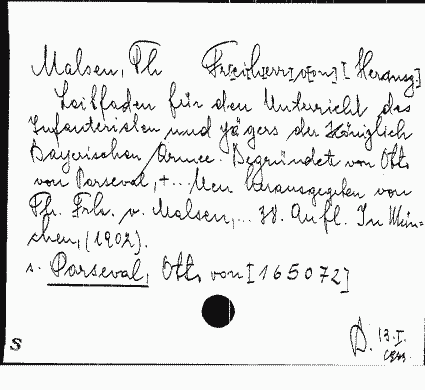 Malsen, Ph Fr[ei]h[err] v[on] [Herausg]
Leitfaden für den Unterricht des
Infanteristen und Jägers der Königlich
Bayerischen Armee. Begründet von Otto
von Parseval, +... Neu herausgegeben von
Ph. Frh. v. Malsen,... 38. Aufl. In Mün-
chen, (1902).
s. Parseval, Otto von [165072]
S
D. 13.I.